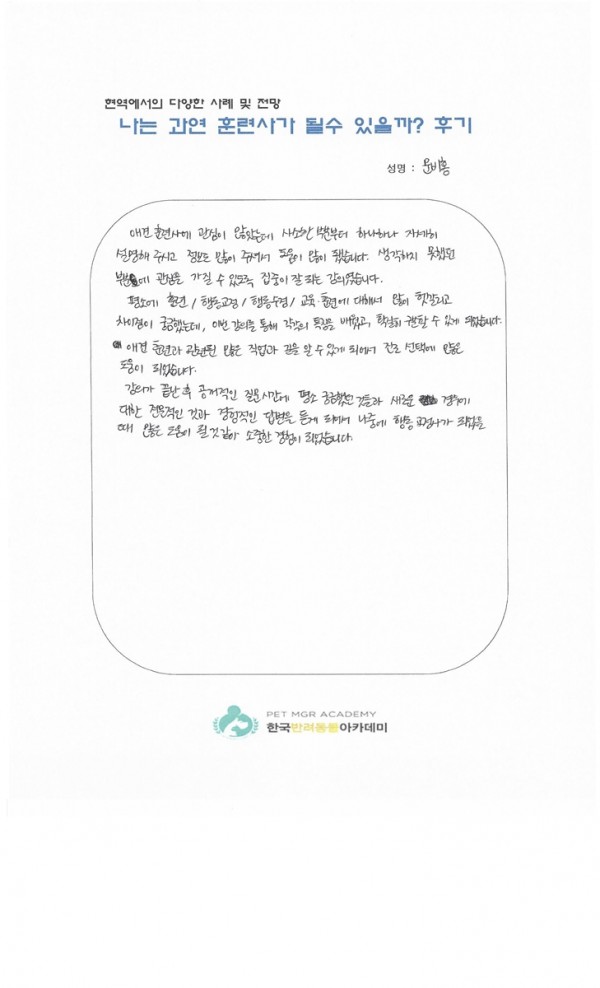 현역에서의 다양한 사례 및 전망
나는 과연 훈련사가 될수 있을까? 후기
성명 : 윤비홍
애견 훈련사에 관심이 많았는데 사소한 부분부터 하나하나 자세히
설명해 주시고 정보도 많이 주셔서 도움이 많이 됐습니다. 생각하지 못했던
부분에 관심을 가질 수 있도록 집중이 잘 되는 강의였습니다.
평소에 훈련 / 행동교정 / 행동수정 / 교육·훈련에 대해서 많이 헷갈리고
차이점이 궁금했는데, 이번 강의를 통해 각각의 특징을 배웠고, 확실히 구분할 수 있게 되었습니다.
애견 훈련과 관련된 많은 직업과 길을 알 수 있게 되어서 진로 선택에 많은
도움이 되었습니다.
강의가 끝난 후 공개적인 질문시간에 평소 궁금했던 것들과 새로운 경험에
대한 전문적인 것과 경험적인 답변을 듣게 되어서 나중에 행동 교정사가 되었을
때 많은 도움이 될 것 같아 소중한 경험이 되었습니다.
PET MGR ACADEMY
한국반려동물아카데미